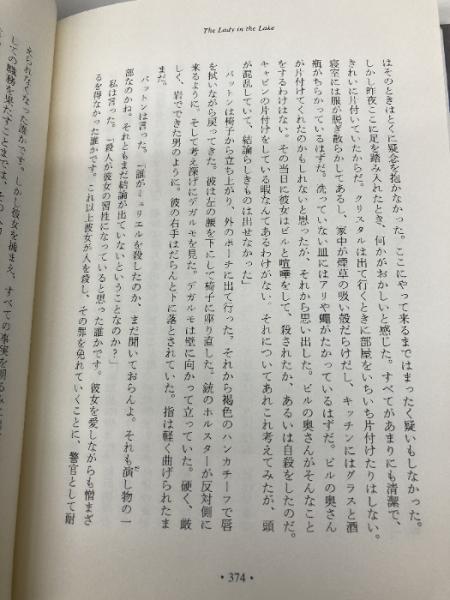 The Lady in the Lake
はそのときはとくに疑念を抱かなかった。ここにやって来るまではまったく疑いもしなかった。
しかし昨夜ここに足を踏み入れたとき、何かがおかしいと感じた。すべてがあまりにも清潔で、
きれいに片付いていたからだ。クリスタルは出て行くときに部屋をいちいち片付けたりはしない。
寝室には服が脱ぎ散らかしてあるし、家中が煙草の吸い殻だらけだし、キッチンにはグラスと酒
瓶がちらかっているはずだ。洗っていない皿にはアリや蠅がたかっているはずだ。ビルの奥さん
が片付けてくれたのかもしれないと思ったが、それから思い出した。ビルの奥さんがそんなこと
をするわけはない。その当日に彼女はビルと喧嘩をして、殺されたか、あるいは自殺をしたのだ。
キャビンの片付けをしている暇なんてあるわけがない。それについてあれこれ考えてみたが、頭
が混乱していて、結論らしきものは出せなかった」
パットンは椅子から立ち上がり、外のポーチに出て行った。それから褐色のハンカチーフで唇
を拭いながら戻ってきた。彼は左の腰を下にして椅子に座り直した。銃のホルスターが反対側に
来るように。そして考え深げにデガルモを見た。デガルモは壁に向かって立っていた。硬く、厳
しく、岩でできた男のように。彼の右手はだらんと下に落とされていた。指は軽く曲げられたま
まだ。
パットンは言った。「誰がミュリエルを殺したのか、まだ聞いておらんよ。それも演し物の一
部なのかね。それともまだ結論が出ていないということなのか？」
私は言った。「殺人が彼女の習性になっていると思った誰かです。彼女を愛しながらも憎まざ
るを得なかった誰かです。これ以上彼女が人を殺し、その罪を免れていくことに、警官として耐
えられなくなった誰かです。しかし彼女を捕まえ、すべての事実を明るみに出
しての職務を果たすことまでは、
・374・